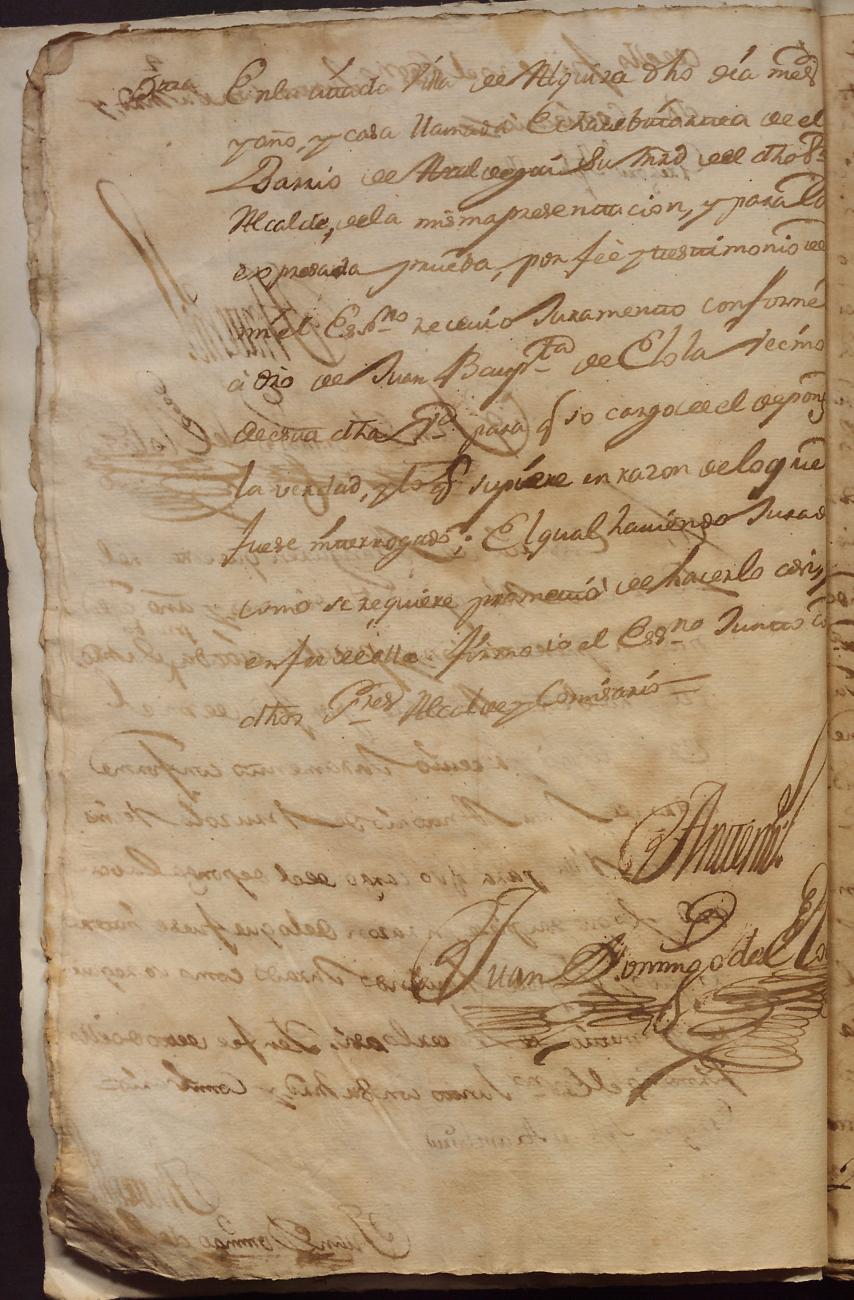 En la citada Villa de Alquiza dho dia mes
y año, y casa llamada Echavebitartea de el
Barrio de Aral de gui Su Mrd de el dho Sr
Alcalde, de la misma presentacion, y para la
expresada prueba, por feè y testimonio de
mi el Essno recivio Juramento conforme
a dro de Juan Bauptta de Elola vecino
de esta dha Va para q so cargo de el depong
la verdad, y lo q supiere en razon de lo que
fuere interrogado; El qual haviendo Jurad
como se requiere prometio de hacerlo asi,
en fee de ello firmo io el Essno Junto co
dhos Sres Alcalde y Comisario
Antemi
Juan Domingo de